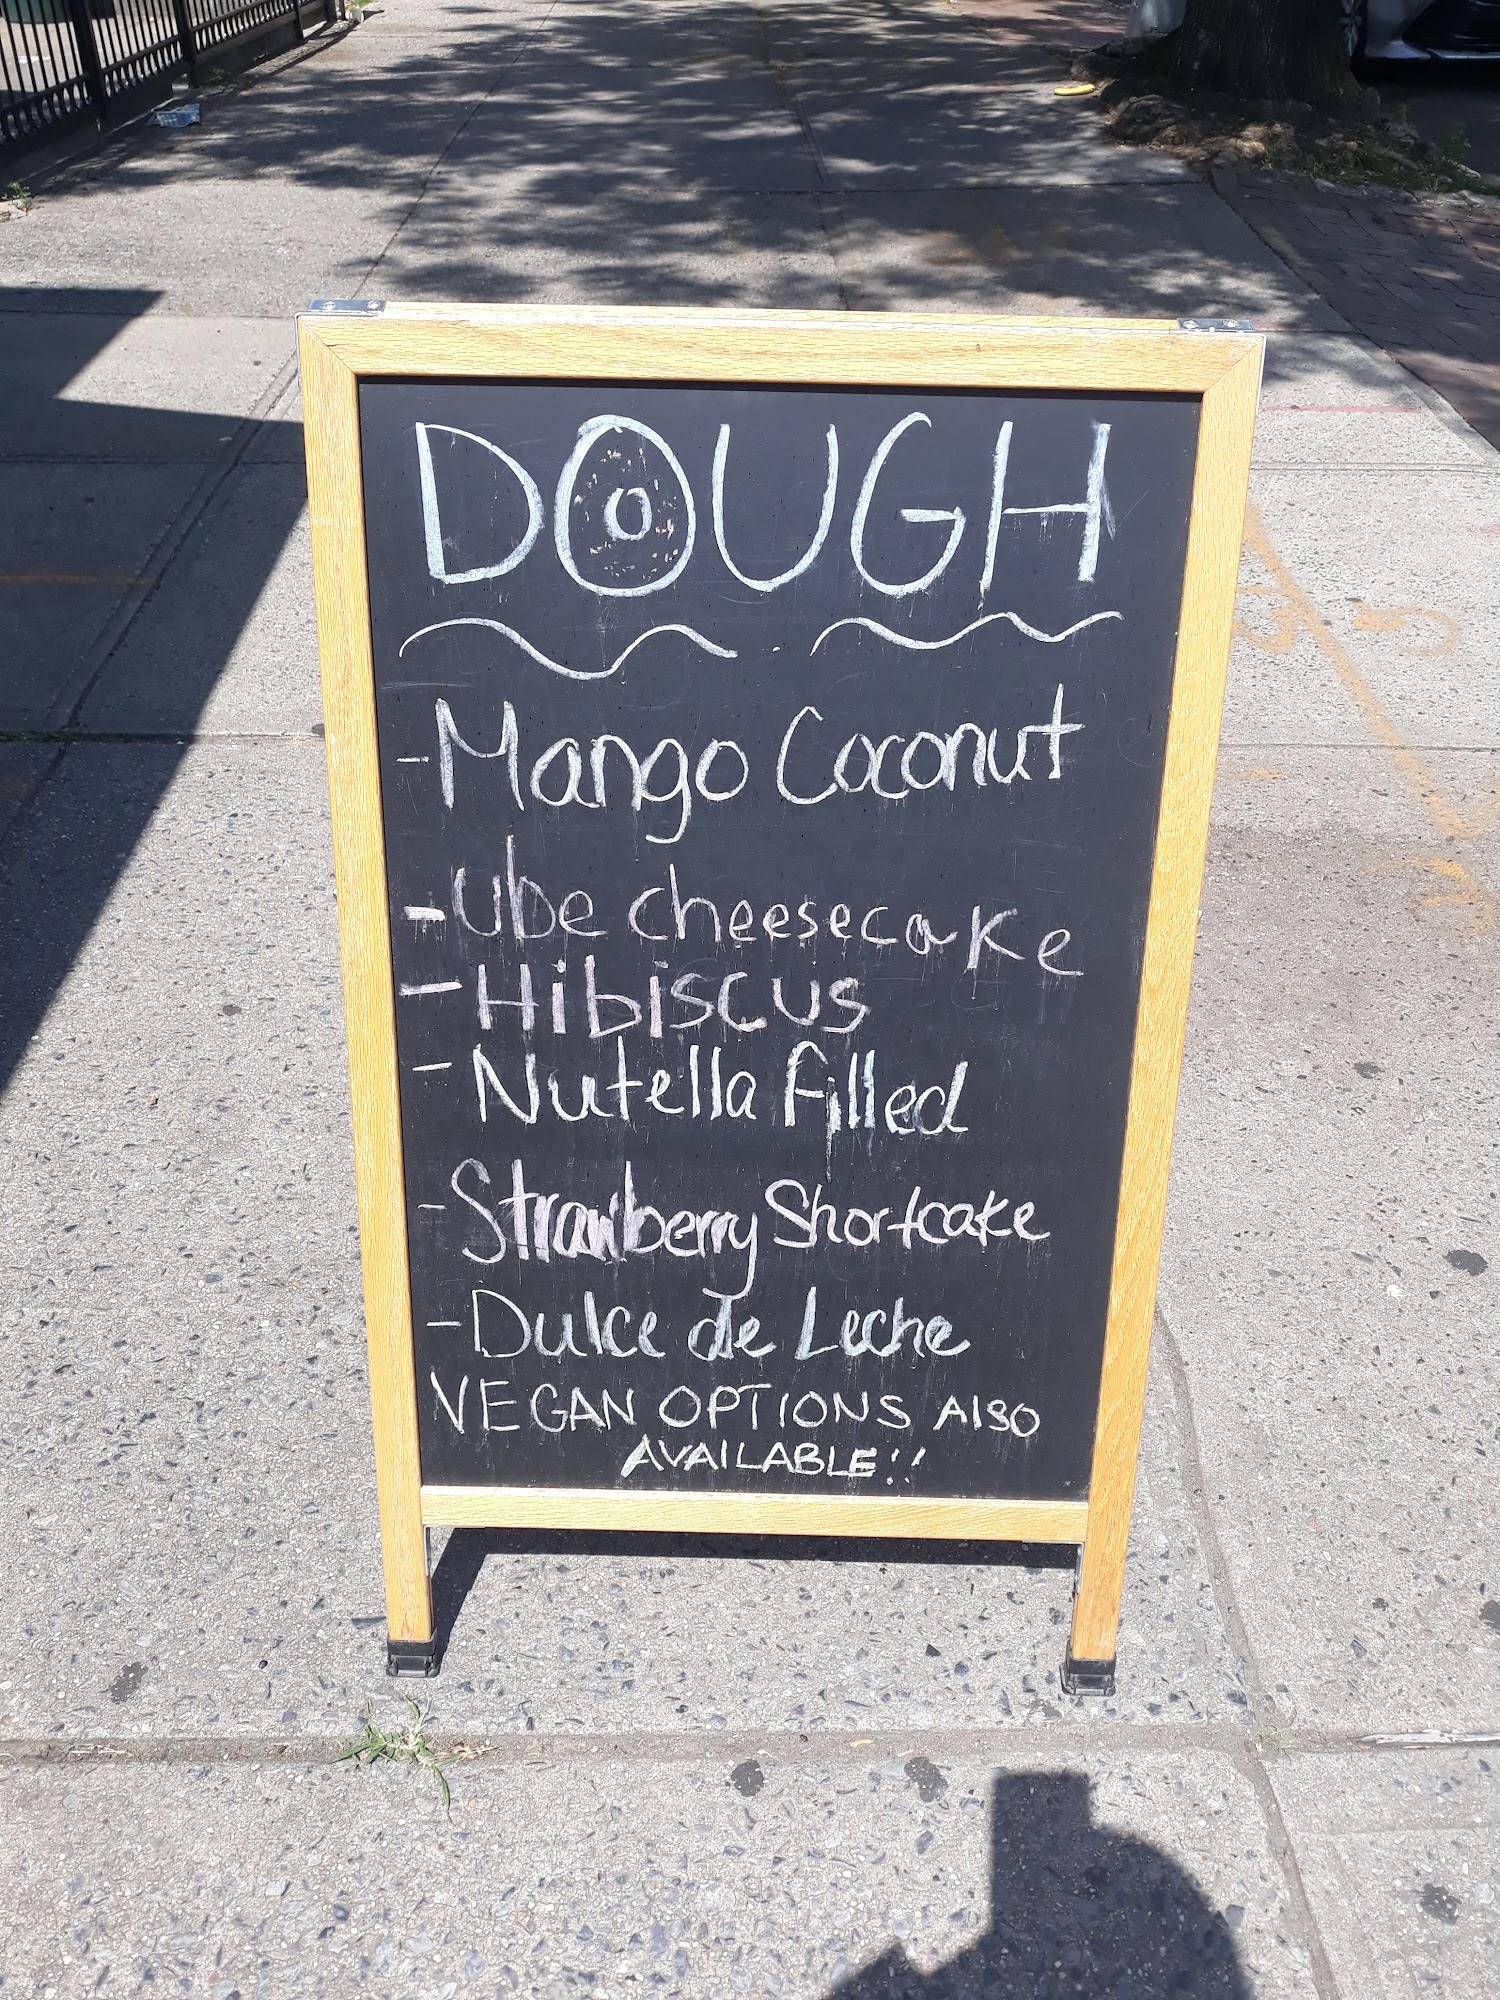 DOUGH
- Mango Coconut
- Ube cheesecake
- Hibiscus
- Nutella filled
- Strawberry Shortcake
- Dulce de Leche
VEGAN OPTIONS AlSO
AVAILABLE!!